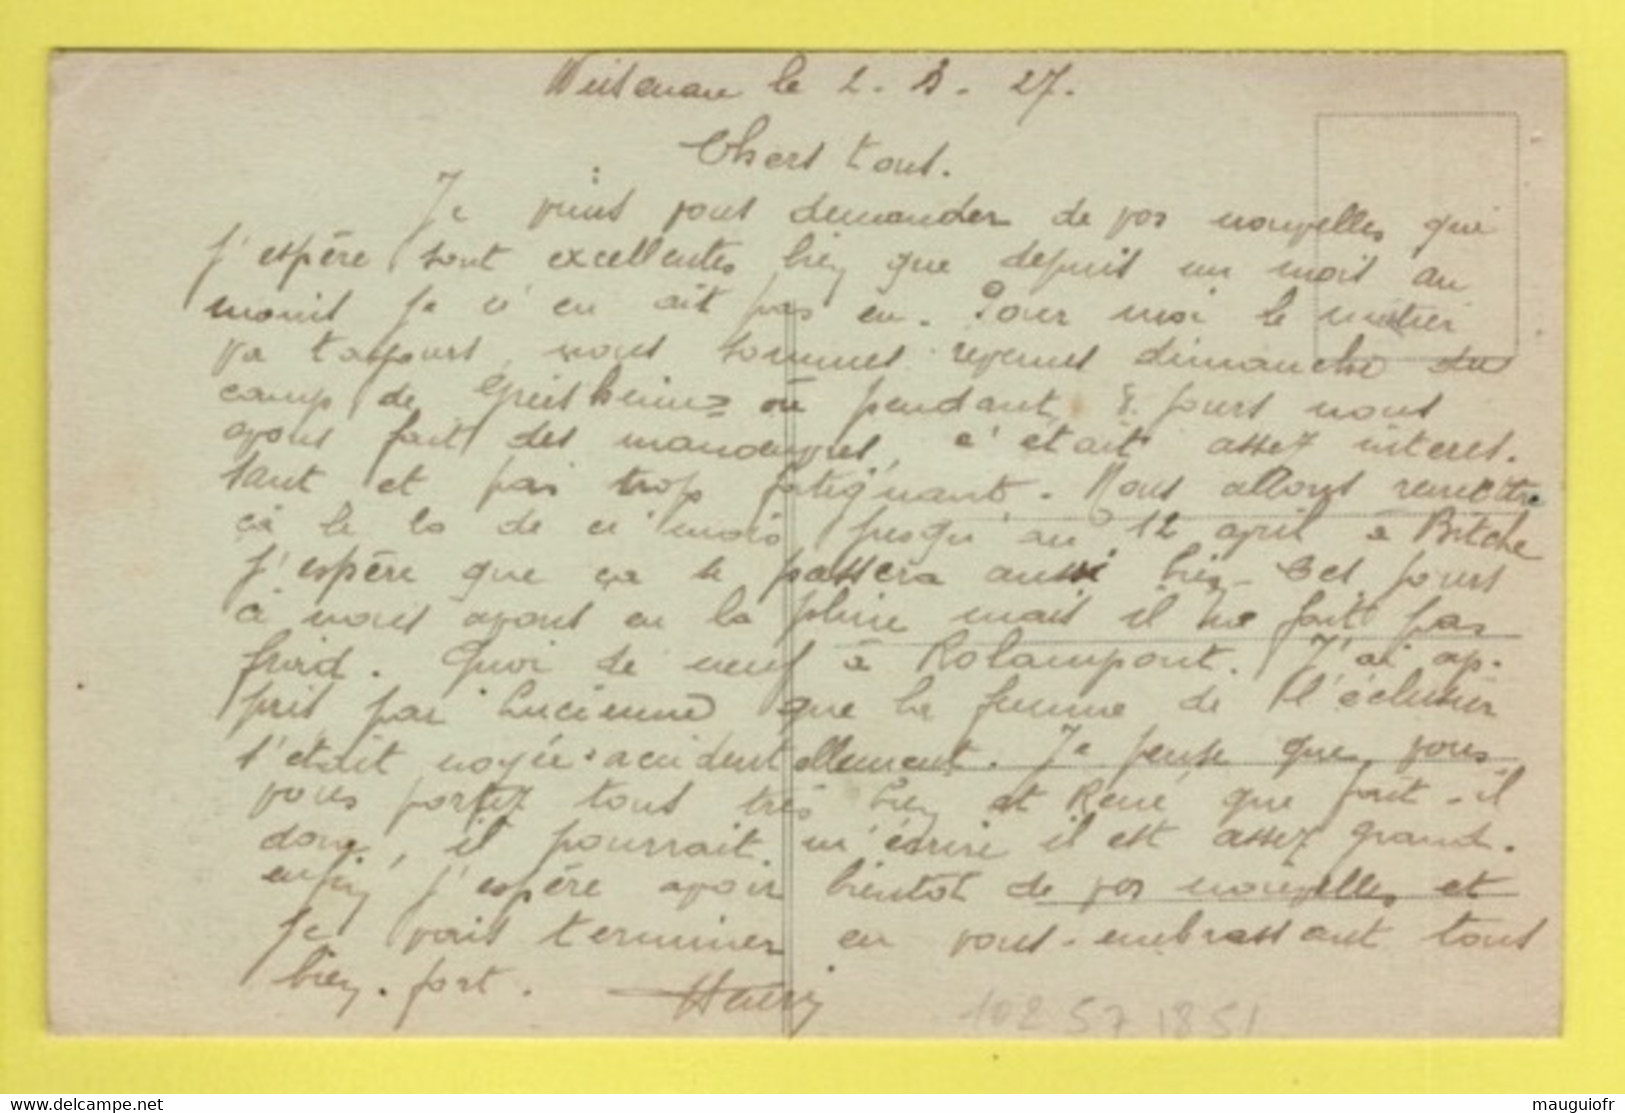 Weisenau le 2. 3. 27.
Chers tous.
Je viens vous demander de vos nouvelles qui
j'espère sont excellentes bien que depuis un mois au
moins je n'en ait pas eu. Pour moi le métier
va toujours, nous sommes revenus dimanche du
camp de Griesheim où pendant 8 jours nous
avons fait des manoeuvres, c'était assez intéres-
sant et pas trop fatiguant. Nous allons remettre
ça le 20 de ce mois jusqu'au 12 avril à Bitche
j'espère que ça se passera aussi bien. Ces jours
ci nous avons eu la pluie mais il ne fait pas
froid. Quoi de neuf à Rolampont. J'ai ap-
pris par Lucienne que la femme de l'éclusier
s'était noyée accidentellement. Je pense que vous
vous portez tous très bien et René que fait-il
donc, il pourrait m'écrire il est assez grand.
enfin j'espère avoir bientôt de vos nouvelles et
je vais terminer en vous embrassant tous
bien fort. Henri
102 57 1851
delcampe.net
mauguiofr